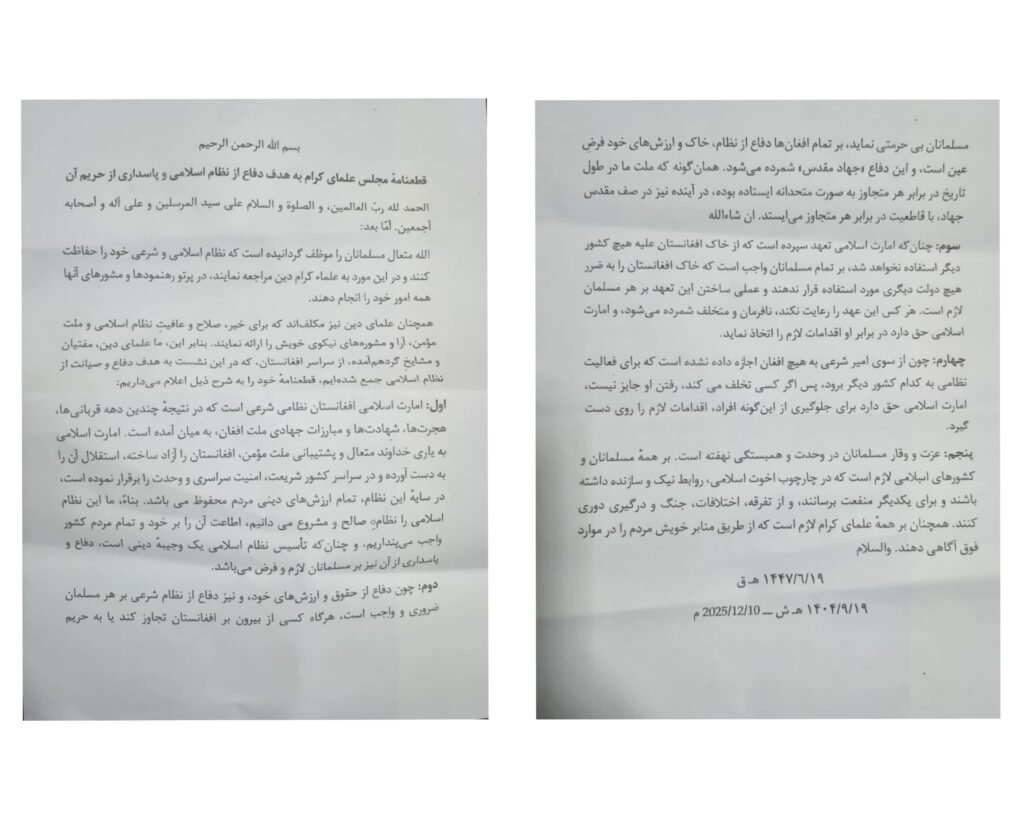 بسم الله الرحمن الرحیم
قطعنامهٔ مجلس علمای کرام به هدف دفاع از نظام اسلامی و پاسداری از حریم آن
الحمد لله ربّ العالمین، و الصلوة و السلام علی سید المرسلین و علی آله و اصحابه
أجمعین. أمّا بعد:
الله متعال مسلمانان را موظف گردانیده است که نظام اسلامی و شرعی خود را حفاظت
کنند و در این مورد به علماء کرام دین مراجعه نمایند، در پرتو رهنمودها و مشورهای آنها
همه امور خود را انجام دهند.
همچنان علمای دین نیز مکلف‌اند که برای خیر، صلاح و عافیتِ نظام اسلامی و ملت
مؤمن، آرا و مشوره‌های نیکوی خویش را ارائه نمایند. بنابر این، ما علمای دین، مفتیان
و مشایخ گردهم‌آمده، از سراسر افغانستان، که در این نشست به هدف دفاع و صیانت از
نظام اسلامی جمع شده‌ایم، قطعنامهٔ خود را به شرح ذیل اعلام می‌داریم:
اول: امارت اسلامی افغانستان نظامی شرعی است که در نتیجهٔ چندین دهه قربانی‌ها،
هجرت‌ها، شهادت‌ها و مبارزات جهادی ملت افغان، به میان آمده است. امارت اسلامی
به یاری خداوند متعال و پشتیبانی ملت مؤمن، افغانستان را آزاد ساخته، استقلال آن را
به دست آورده و در سراسر کشور شریعت، امنیت سراسری و وحدت را برقرار نموده است،
در سایهٔ این نظام، تمام ارزش‌های دینی مردم محفوظ می باشد. بناءً، ما این نظام
اسلامی را نظامِ صالح و مشروع می دانیم، اطاعت آن را بر خود و تمام مردم کشور
واجب می‌پنداریم، و چنان‌که تأسیس نظام اسلامی یک وجیبهٔ دینی است، دفاع و
پاسداری از آن نیز بر مسلمانان لازم و فرض می‌باشد.
دوم: چون دفاع از حقوق و ارزش‌های خود، و نیز دفاع از نظام شرعی بر هر مسلمان
ضروری و واجب است، هرگاه کسی از بیرون بر افغانستان تجاوز کند یا به حریم
مسلمانان بی حرمتی نماید، بر تمام افغان‌ها دفاع از نظام، خاک و ارزش‌های خود فرضِ
عین است، و این دفاع «جهاد مقدس» شمرده می‌شود. همان‌گونه که ملت ما در طول
تاریخ در برابر هر متجاوز به صورت متحدانه ایستاده بوده، در آینده نیز در صف مقدس
جهاد، با قاطعیت در برابر هر متجاوز می‌ایستد. ان شاءالله
سوم: چنان‌که امارت اسلامی تعهد سپرده است که از خاک افغانستان علیه هیچ کشور
دیگر استفاده نخواهد شد، بر تمام مسلمانان واجب است که خاک افغانستان را به ضرر
هیچ دولت دیگری مورد استفاده قرار ندهند و عملی ساختن این تعهد بر هر مسلمان
لازم است. هر کس این عهد را رعایت نکند، نافرمان و متخلف شمرده می‌شود، و امارت
اسلامی حق دارد در برابر او اقدامات لازم را اتخاذ نماید.
چهارم: چون از سوی امیر شرعی به هیچ افغان اجازه داده نشده است که برای فعالیت
نظامی به کدام کشور دیگر برود، پس اگر کسی تخلف می کند، رفتن او جایز نیست،
امارت اسلامی حق دارد برای جلوگیری از این‌گونه افراد، اقدامات لازم را روی دست
گیرد.
پنجم: عزت و وقار مسلمانان در وحدت و همبستگی نهفته است. بر همهٔ مسلمانان و
کشورهای اسلامی لازم است که در چارچوب اخوت اسلامی، روابط نیک و سازنده داشته
باشند و برای یکدیگر منفعت برسانند، و از تفرقه، اختلافات، جنگ و درگیری دوری
کنند. همچنان بر همهٔ علمای کرام لازم است که از طریق منابر خویش مردم را در موارد
فوق آگاهی دهند. والسلام
۱۴۴۷/۶/۱۹ هـ ق
۱۴۰۴/۹/۱۹ هـ ش ــ 2025/12/10 م